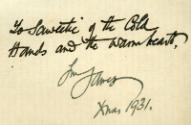 To Sweetie of the Cold
Hands and the warm heart,
Xmas 1931.